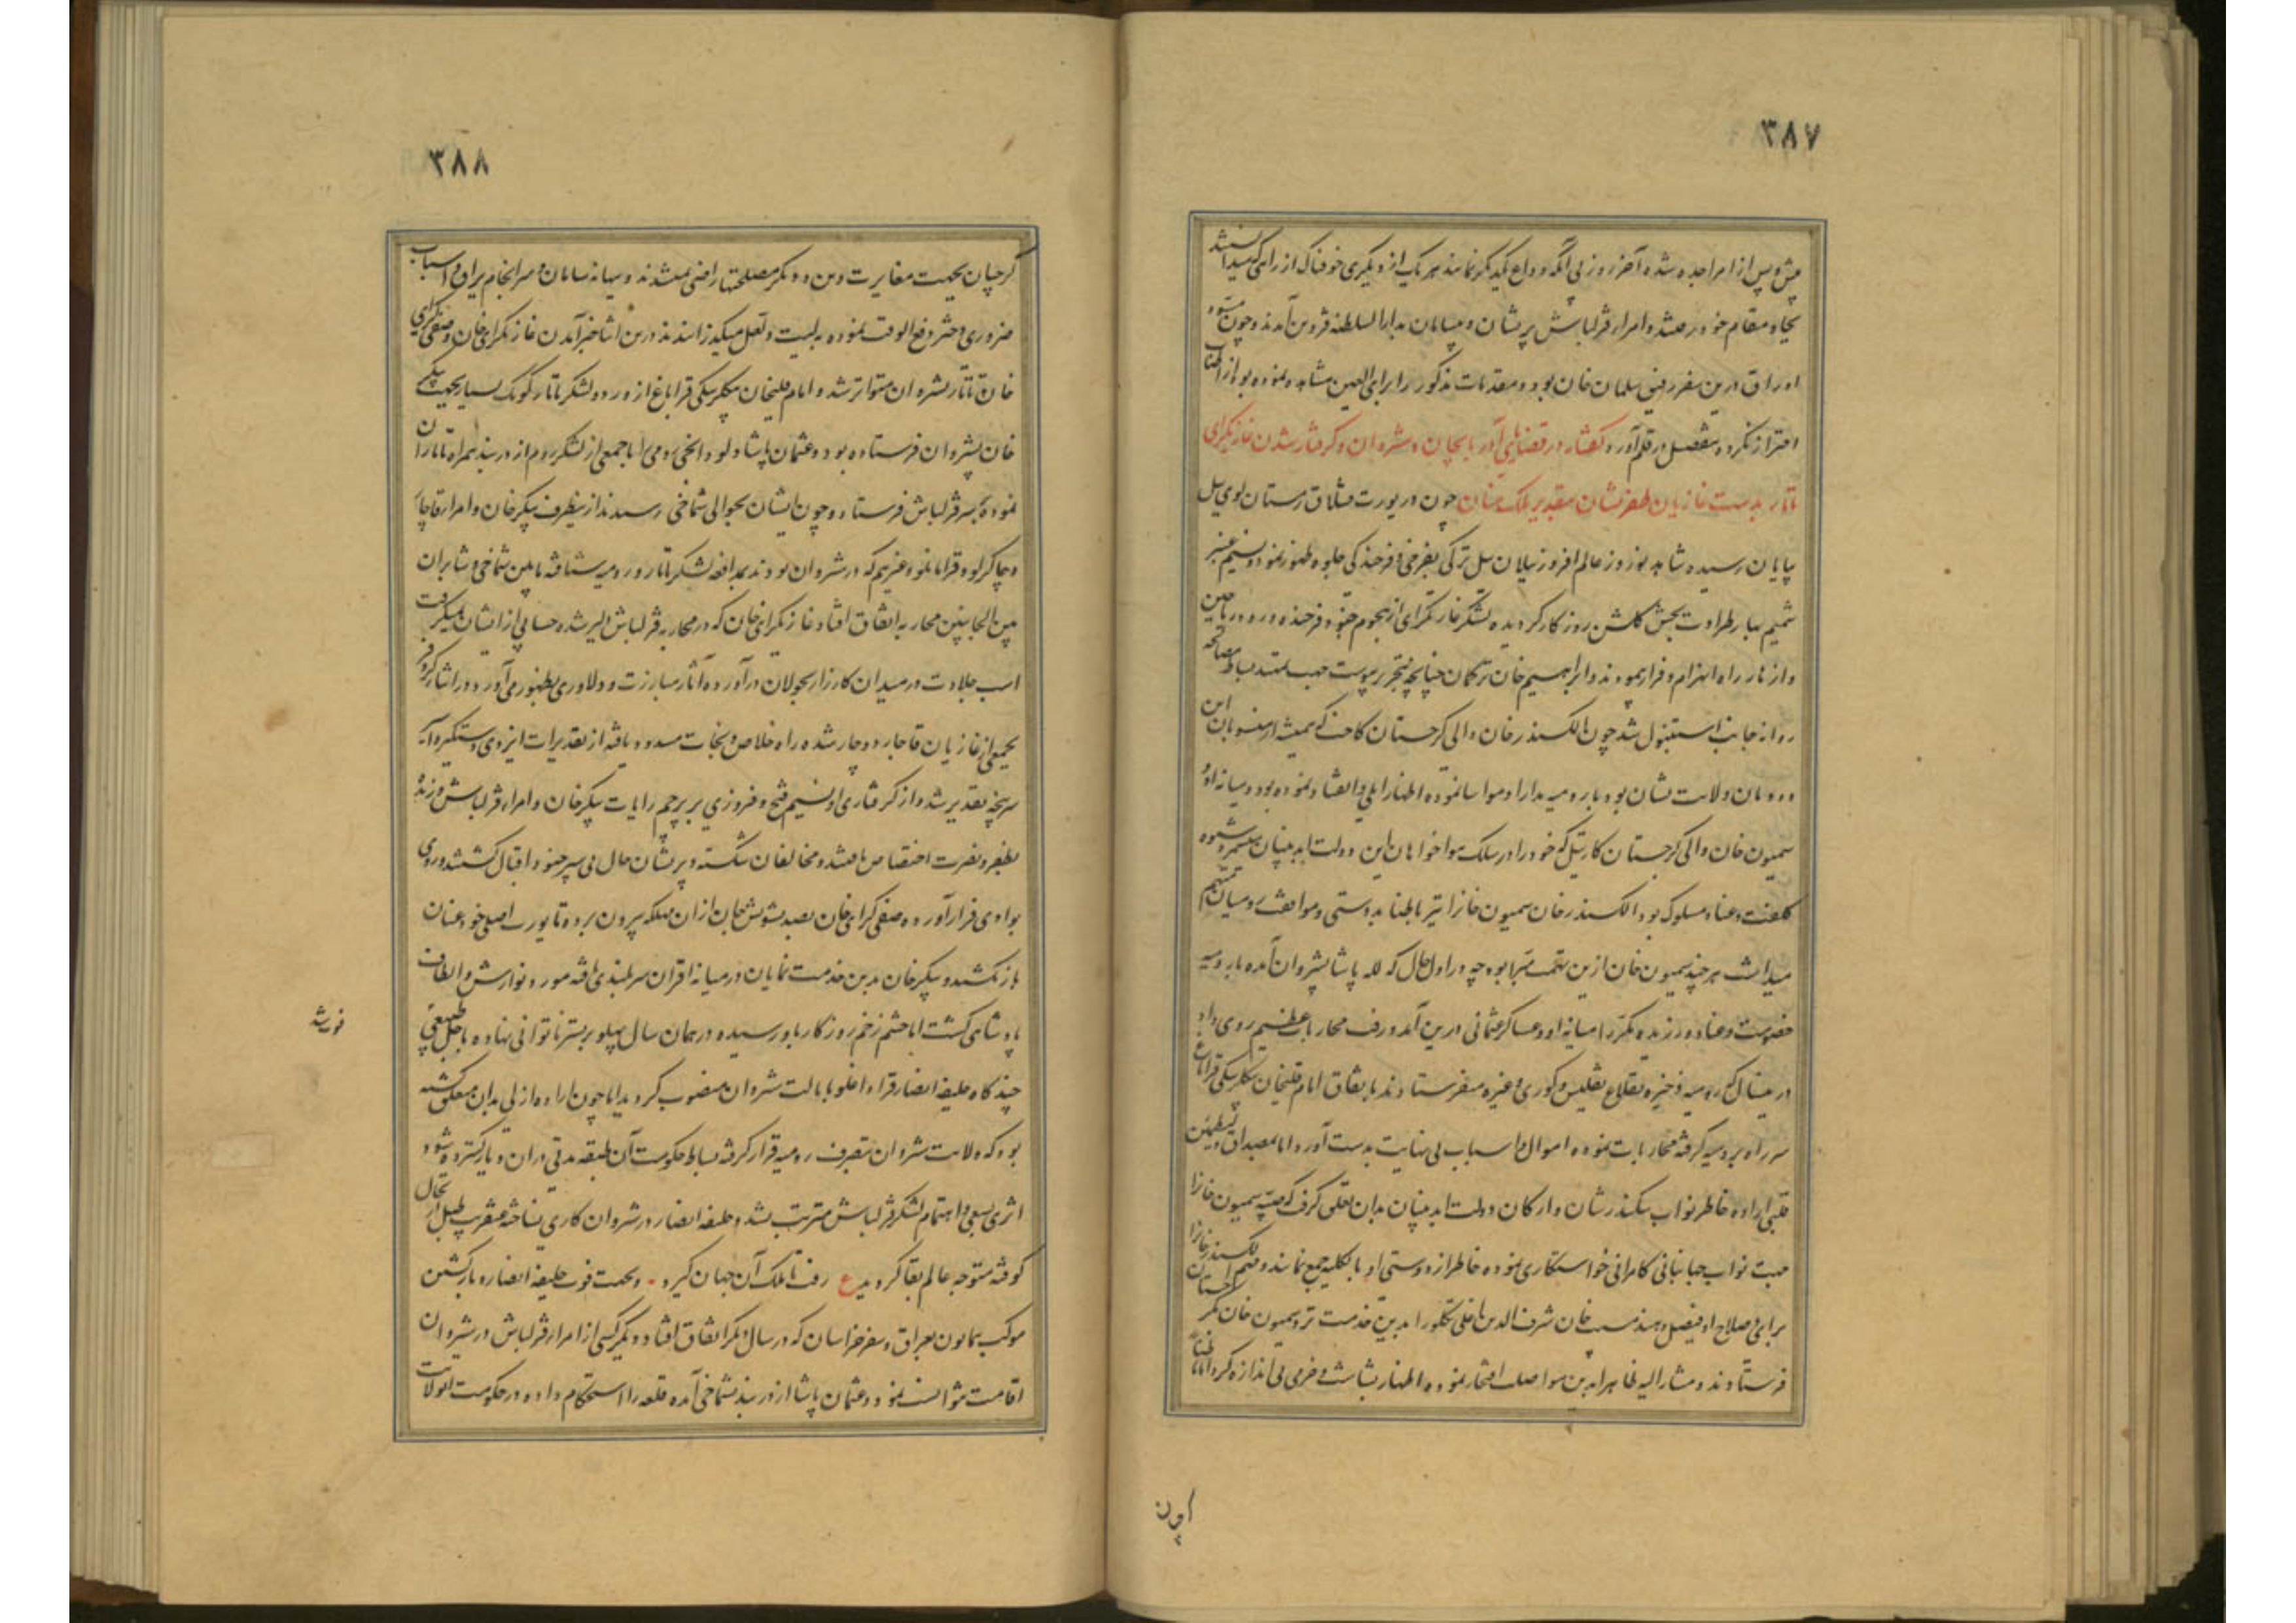 ۳۸۷
پیش و پس از امرا جدا شده آخر روز بی آنکه وداع یکدیگر نمایند هر یک از دیگری خوفناک از راهی که میدانستند
بجا و مقام خود رفتند و امراء قزلباش پریشان و بیسامان بدارالسلطنه قزوین آمدند و چون مسود
اوراق درین سفر رفیق سلمان خان بود و مقدمات مذکور را برای العین مشاهده نموده بود از اطناب
احتراز نکرده مفصل در قلم آورد گفتار در قضایای آذربایجان و شروان و گرفتار شدن غازیکرای
تاتار بدست غازیان ظفرنشان بتقدیر ملک منان چون در یورت قشلاق زمستان لوی ئیل
بپایان رسیده شاهد نوروز عالم افروز ئیلان ئیل ترکی بفرخی و فرخندکی جلوه ظهور نمود و نسیم عنبر
شمیم بهار طراوت بخش کلشن روزکار کردیده لشکر غازیکرای از هجوم جنود فرخنده ورود ریاحین
و ازهار راه انهزام و فرار پیمودند و ابراهیم خان ترکمان چنانچه بتحریر پیوست جهت تمهید بساط مصالحه
روانه جانب استنبول شد چون الکسندر خان والی کرجستان کاخت که همیشه از منسوبان این
دودمان ولایت نشان بود با رومیه مدارا و مواسا نموده اظهار ایلی و انقیاد نموده بود و میانه او و
سمیون خان والی کرجستان کارتیل که خود را در سلک هواخواهان این دولت ابد بنیان میشمرد شیوه
کلفت و عناد مسلوک بود الکسندر خان سمیون خانرا نیز باطنا بدوستی و موافقت رومیان متهم
میداشت هر چند سمیون خان ازین تهمت مبرا بود چه در اول حال که لله پاشا بشروان آمده با رومیه
خصومت و عناد ورزیده مکرر میانه او و عساکر عثمانی درین آمد و رفت محاربات عظیم روی داد
درینسال که رومیه ذخیره بقلاع تفلیس و کوری و غیره میفرستادند باتفاق امامقلیخان بیکلربیکی قراباغ
سر راه بر رومیه گرفته محاربات نموده اموال و اسباب بی نهایت بدست آورد اما بمصداق و لیطمئن
قلبی اراده خاطر نواب سکندر شان و ارکان دولت ابد بنیان بدان تعلق کرفت که صبیه سمیون خانرا
جهت نواب جهانبانی کامرانی خواستکاری نموده خاطر از دوستی او بالکلیه جمع نمایند و مهم الکسندر خانرا
برای و صلاح او فیصل دهند حسب خان شرف الدین اغلی تکلو را بدین خدمت نزد سمیون خان بکرجستان
فرستادند و مشار الیه ظاهرا بدین مواصلت افتخار نموده اظهار بشاشت و خرمی بی اندازه کرد اما باطنا
چون
۳۸۸
کرجیان بجهت مغایرت دین و دیکر مصلحتها راضی نمیشدند و ببهانه سامان و سرانجام یراق و اسباب
ضروری و حشر دفع الوقت نموده به لیت و لعل میکذرانیدند درین اثنا خبر آمدن غازیکرای خان و صفی کرای
خان تاتار بشروان متواتر شد و امام قلیخان بیکلربیکی قراباغ از ورود لشکر تاتار کومک بسیار بجهت پیکر
خان بشروان فرستاده بود و عثمان پاشا و لوداخی رومی را با جمعی از لشکر روم از دربند همراه تاتاران
نموده بر سر قزلباش فرستاد و چون ایشان بحوالی شماخی رسیدند ازینطرف پیکر خان و امراء قاجار
و چاکرلو و قرامانلو و غیرهم که در شروان بودند بمدافعه لشکر تاتار و رومیه شتافته مابین شماخی و شابران
بین الجانبین محاربه اتفاق افتاد غازیکرای خان که در محاربه قزلباش دلیر شده حسابی از ایشان نمیکرفت
اسب جلادت در میدان کارزار بجولان درآورده آثار مبارزت و دلاوری بظهور می آورد در اثنای کر و فر
بجمعی از غازیان قاجار دوچار شده راه خلاص و نجات مسدود یافته از تقدیرات ایزدی دستکیر
سرپنجه تقدیر شد و از کرفتاری او نسیم فتح و فروزی بر پرچم رایات پیکر خان و امراء قزلباش وزیده
بظفر و نصرت اختصاص یافتند و مخالفان شکسته و پریشان حال بی سپر جنود اقبال کشتند و روی
بوادی فرار آورده صفی کرای خان بصد تشویش جان از ان مهلکه بیرون برده تا یورت اصلی خود عنان
باز نکشید و پیکر خان بدین خدمت نمایان در میانه اقران سربلندی یافته مورد نوازش و الطاف
پادشاهی کشت اما چشم زخم روزکار باو رسیده در همان سال پهلو بر بستر ناتوانی نهاده باجل طبیعی
فوت شد
چند کاه خلیفه انصار قراداغلو بایالت شروان منصوب کردید اما چون اراده ازلی بدان متعلق کشته
بود که ولایت شروان بتصرف رومیه قرار کرفته بساط حکومت آن طبقه مدتی در ان دیار کسترده شود
اثری بسعی و اهتمام لشکر قزلباش مترتب نشد و خلیفه انصار در شروان کاری نساخته عنقریب طبل ارتحال
کوفته متوجه عالم بقا کردید ع رفت تا ملک آن جهان کیرد و بجهت فوت خلیفه انصار و بازکشتن
موکب همایون بعراق و سفر خراسان که در سال دیکر اتفاق افتاد دیکر کسی از امراء قزلباش در شیروان
اقامت نتوانست نمود و عثمان پاشا از دربند بشماخی آمده قلعه را استحکام داده در حکومت انولایت